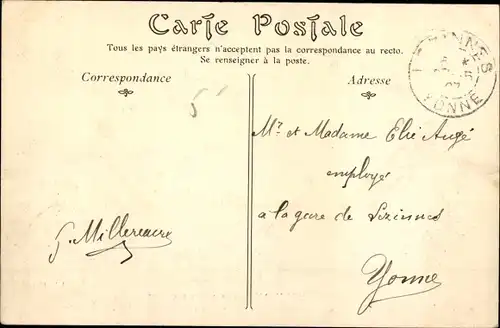 Carte Postale
Tous les pays étrangers n'acceptent pas la correspondance au recto.
Se renseigner à la poste.
Correspondance
Adresse
5
LEZINNES
YONNE
Mr. et Madame Elie Augé
employé
a la gare de Lezinnes
Yonne